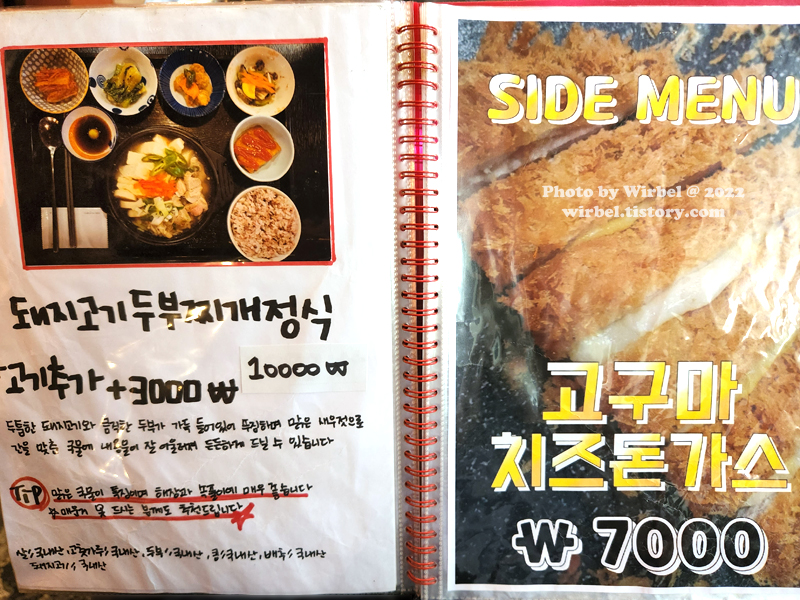 돼지고기두부찌개정식
고기추가 +3000₩
10000₩
두툼한 돼지고기와 큼직한 두부가 가득 들어있어 푸짐하며 맑은 새우젓으로
간을 맞춘 국물에 내용물이 잘 어우러져 든든하게 드실 수 있습니다
TIP 맑은 국물이 특징이며 해장과 속풀이에 매우 좋습니다
매운거 못 드시는 분께도 추천드립니다
쌀:국내산, 고춧가루:국내산, 두부:국내산, 콩:국내산, 배추:국내산
돼지고기:국내산
SIDE MENU
Photo by Wirbel @ 2022
wirbel.tistory.com
고구마
치즈돈가스
₩ 7000